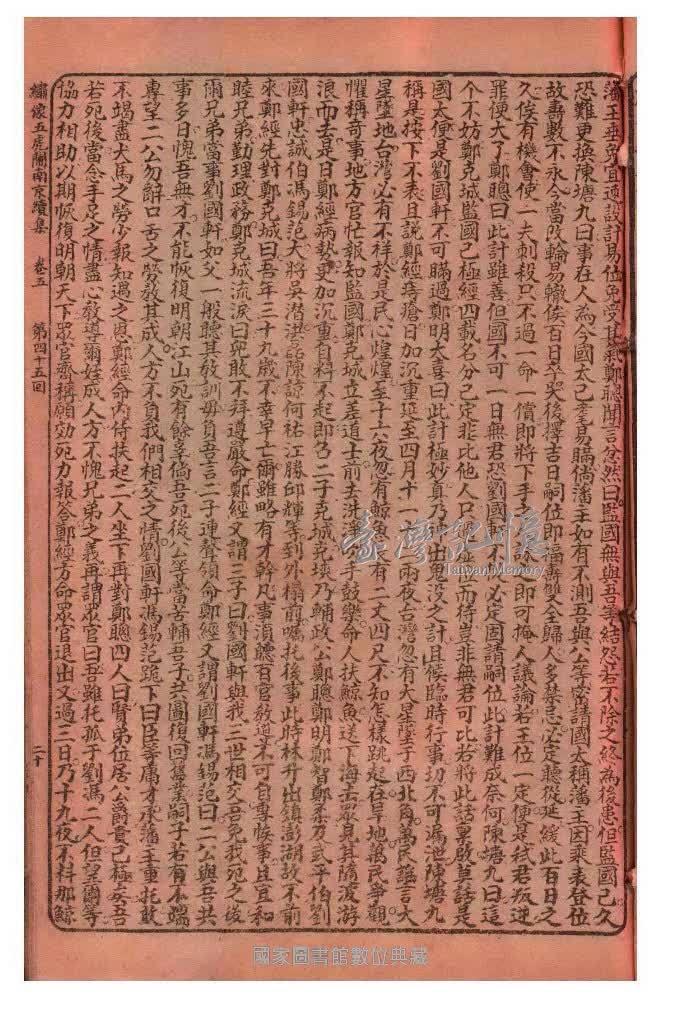 藩主垂危宜速設計易位免受其弒鄭聰聞言忿然曰監國無與吾等結怨若不除之終為後患但監國已久
恐難更換陳塘九曰事在人為今國太己老易瞞倘藩主如有不測吾與公等密請國太稱藩主因乘表登位
故壽數不永今當改輪易轍俟百日卒哭後擇吉日嗣位即福壽雙全歸人多禁忌必定聽從延緩此百日之
久俟有機會使一夫刺殺只不過一命一償即將下手之人誅戮即可掩人議論若王位一定便是弒君叛逆
罪便大了鄭聰曰此計雖善但國不可一日無君恐劉國軒不從必定固請嗣位此計難成奈何陳塘九曰這
个不妨鄭克𡒉監國己極經四載名分己定非比他人只須
而待豈非無君可比若將此話稟啟莫話是
國太便是劉國軒不可瞞過鄭明大喜曰此計極妙真乃神出鬼没之計且候臨時行事切不可漏泄陳塘九
稱是按下不表且說鄭經痔瘡日加沉重延至四月十一
兩夜台灣忽有大星墜于西北角萬民謠言大
星墜地台灣必有不祥於是民心煌煌至十六夜忽有鯨魚
有二丈四尺不知怎樣跳起在旱地萬民爭觀
懼稱奇事地方官忙報知監國鄭克𡒉立差道士前去洗
手鼓樂命人扶鯨魚送下海去眾見其隨波游
浪而去是日鄭經病勢更加沉重自料不起即召二子克𡒉克塽乃輔政公鄭聰鄭明鄭智鄭柔及武平伯劉
國軒忠誠伯馮錫范大將吳潜洪磊陳諒何祐江勝邱輝等到外榻前囑托後事此時林升出鎮澎湖故不前
來鄭經先對鄭克𡒉曰吾年三十九歲不幸早亡爾雖略有才幹凡事湏聽百官教道不可自專悞事且宜和
睦兄弟勤理政務鄭克𡒉流淚曰兒敢不拜遵嚴命鄭經又謂三子曰劉國軒與我三世相交吾免我死之後
爾兄弟當事劉國軒如父一般聽其教訓毋負吾言二子連聲領命鄭經又謂劉國軒馮錫范曰二公與吾共
事多日愧吾無才不能恢復明朝江山死有餘辜倘吾死後公等當苦輔吾子共圖復回舊業嗣子若有不端
專望二公勿辭口舌之勞教其成人方不負我們相交之情劉國軒馮錫范跪下曰臣等庸才承藩主重托敢
不竭盡犬馬之勞少報知遇之恩鄭經命內侍扶起二人坐下再對鄭聰四人曰賢弟位居公爵貴己極矣吾
若死後當念手足之情盡心教導爾姪成人方不愧兄弟之義再謂眾官曰吾雖托孤于劉馮二人但望爾等
協力相助以期恢復明朝天下眾官齊稱願効死力報答鄭經方命眾官退出又過三日乃十九夜不料那鯨
繡像五虎鬧南京續集 卷五 第四十五回 二十
臺灣記憶
Taiwan Memory
國家圖書館數位典藏